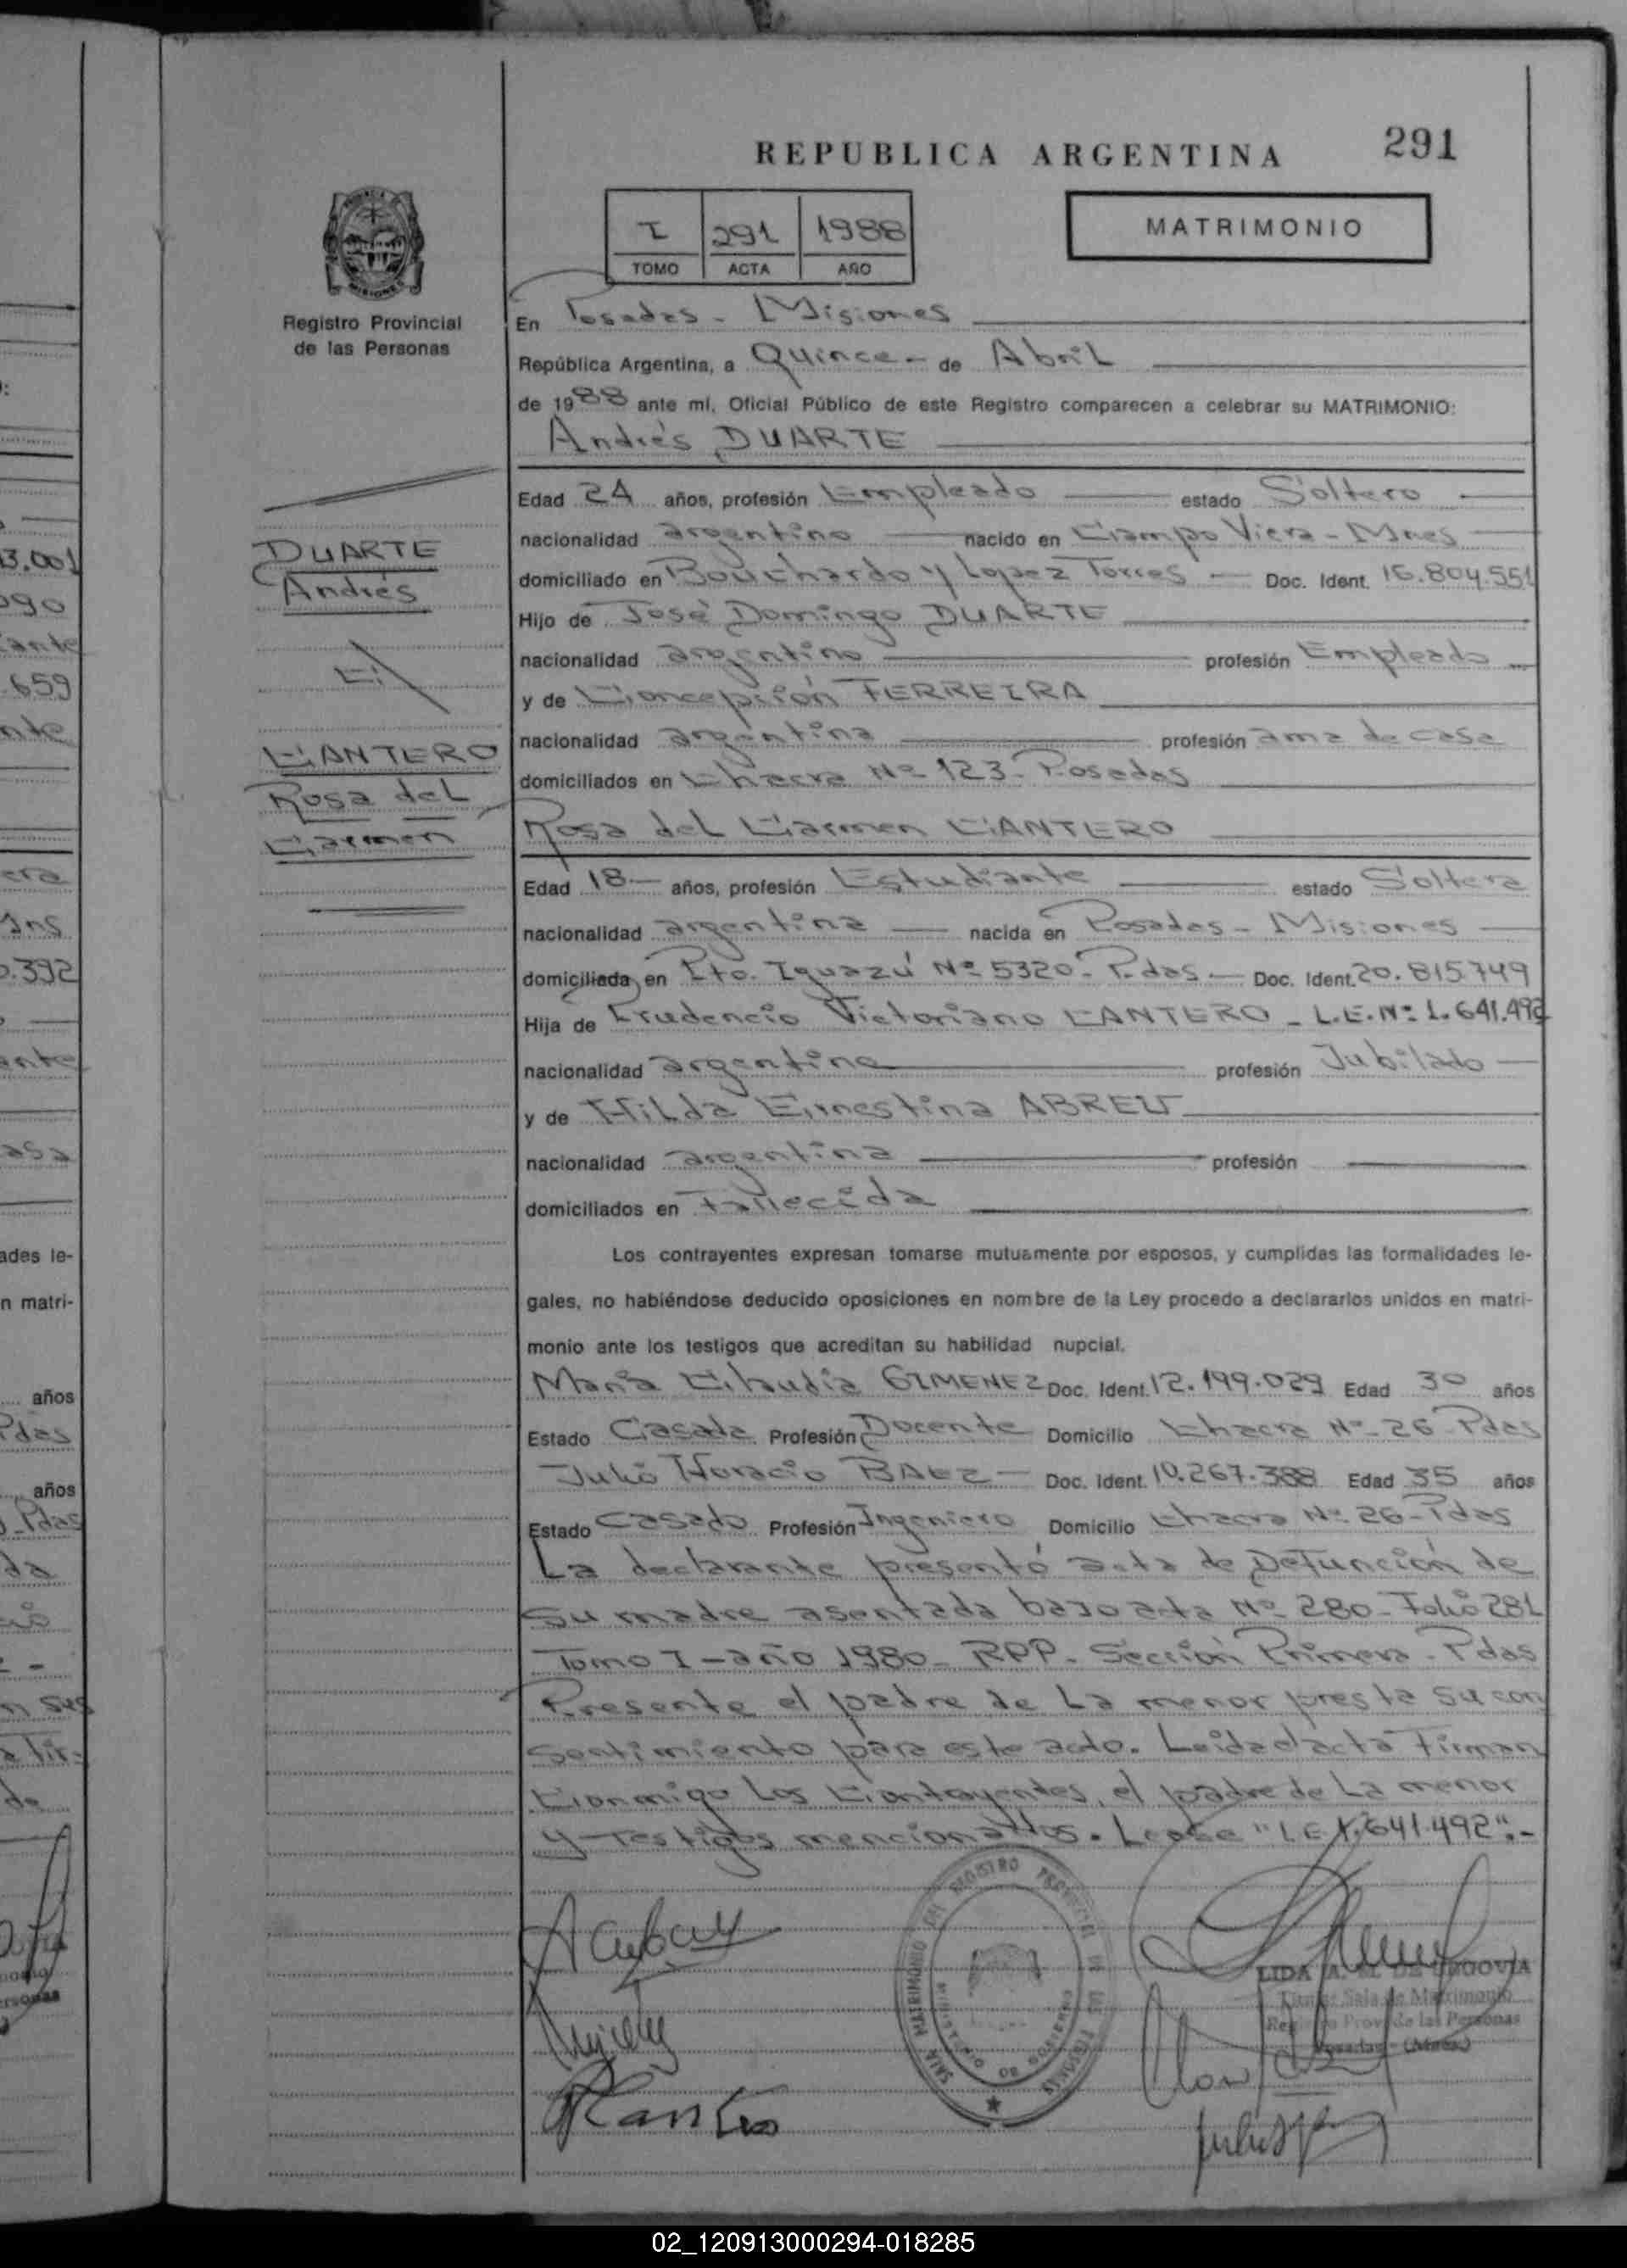 REPUBLICA ARGENTINA
291
I 291 1988
TOMO ACTA AÑO
MATRIMONIO
Registro Provincial
de las Personas
En Posadas - Misiones
República Argentina, a Quince - de Abril
de 1988 ante mí, Oficial Público de este Registro comparecen a celebrar su MATRIMONIO:
Andrés DUARTE
Edad 24 años, profesión Empleado estado Soltero
nacionalidad argentino nacido en Campo Viera - Mnes
domiciliado en Bouchardo y Lopez Torres - Doc. Ident. 16.804.551
Hijo de José Domingo DUARTE
nacionalidad argentino profesión Empleado
y de Concepción FERREIRA
nacionalidad argentina profesión ama de casa
domiciliados en Chacra Nº 123 - Posadas
DUARTE
Andrés
C/
CANTERO
Rosa del
Carmen
Rosa del Carmen CANTERO
Edad 18 - años, profesión Estudiante estado Soltera
nacionalidad argentina nacida en Posadas - Misiones
domiciliada en Pto. Iguazú Nº 5320 - Pdas - Doc. Ident. 20.815.749
Hija de Prudencio Victoriano CANTERO - L.E. Nº 1.641.492
nacionalidad argentino profesión Jubilado
y de Hilda Ernestina ABREU
nacionalidad argentina profesión
domiciliados en Fallecida
Los contrayentes expresan tomarse mutuamente por esposos, y cumplidas las formalidades le-
gales, no habiéndose deducido oposiciones en nombre de la Ley procedo a declararlos unidos en matri-
monio ante los testigos que acreditan su habilidad nupcial.
María Claudia GIMENEZ Doc. Ident. 12.199.029 Edad 30 años
Estado Casada Profesión Docente Domicilio Chacra Nº 26 - Pdas
Julio Horacio BAEZ - Doc. Ident. 10.267.388 Edad 35 años
Estado Casado Profesión Ingeniero Domicilio Chacra Nº 26 - Pdas
La declarante presentó acta de Defunción de
su madre asentada bajo acta Nº 280 - Folio 281
Tomo I - año 1980 - RPP - Sección Primera - Pdas
Presente el padre de La menor presta su con
sentimiento para este acto. Leida el acta Firman
Conmigo Los Contrayentes, el padre de La menor
y Testigos mencionados. Lease "LE 1.641.492".-
SALA MATRIMONIO DEL REGISTRO PROVINCIAL DE LAS PERSONAS
MINISTERIO DE GOBIERNO
LIDA A. M. DE SEGOVIA
Titular Sala de Matrimonio
Registro Prov. de las Personas
Posadas - (Mnes.)
02_120913000294-018285